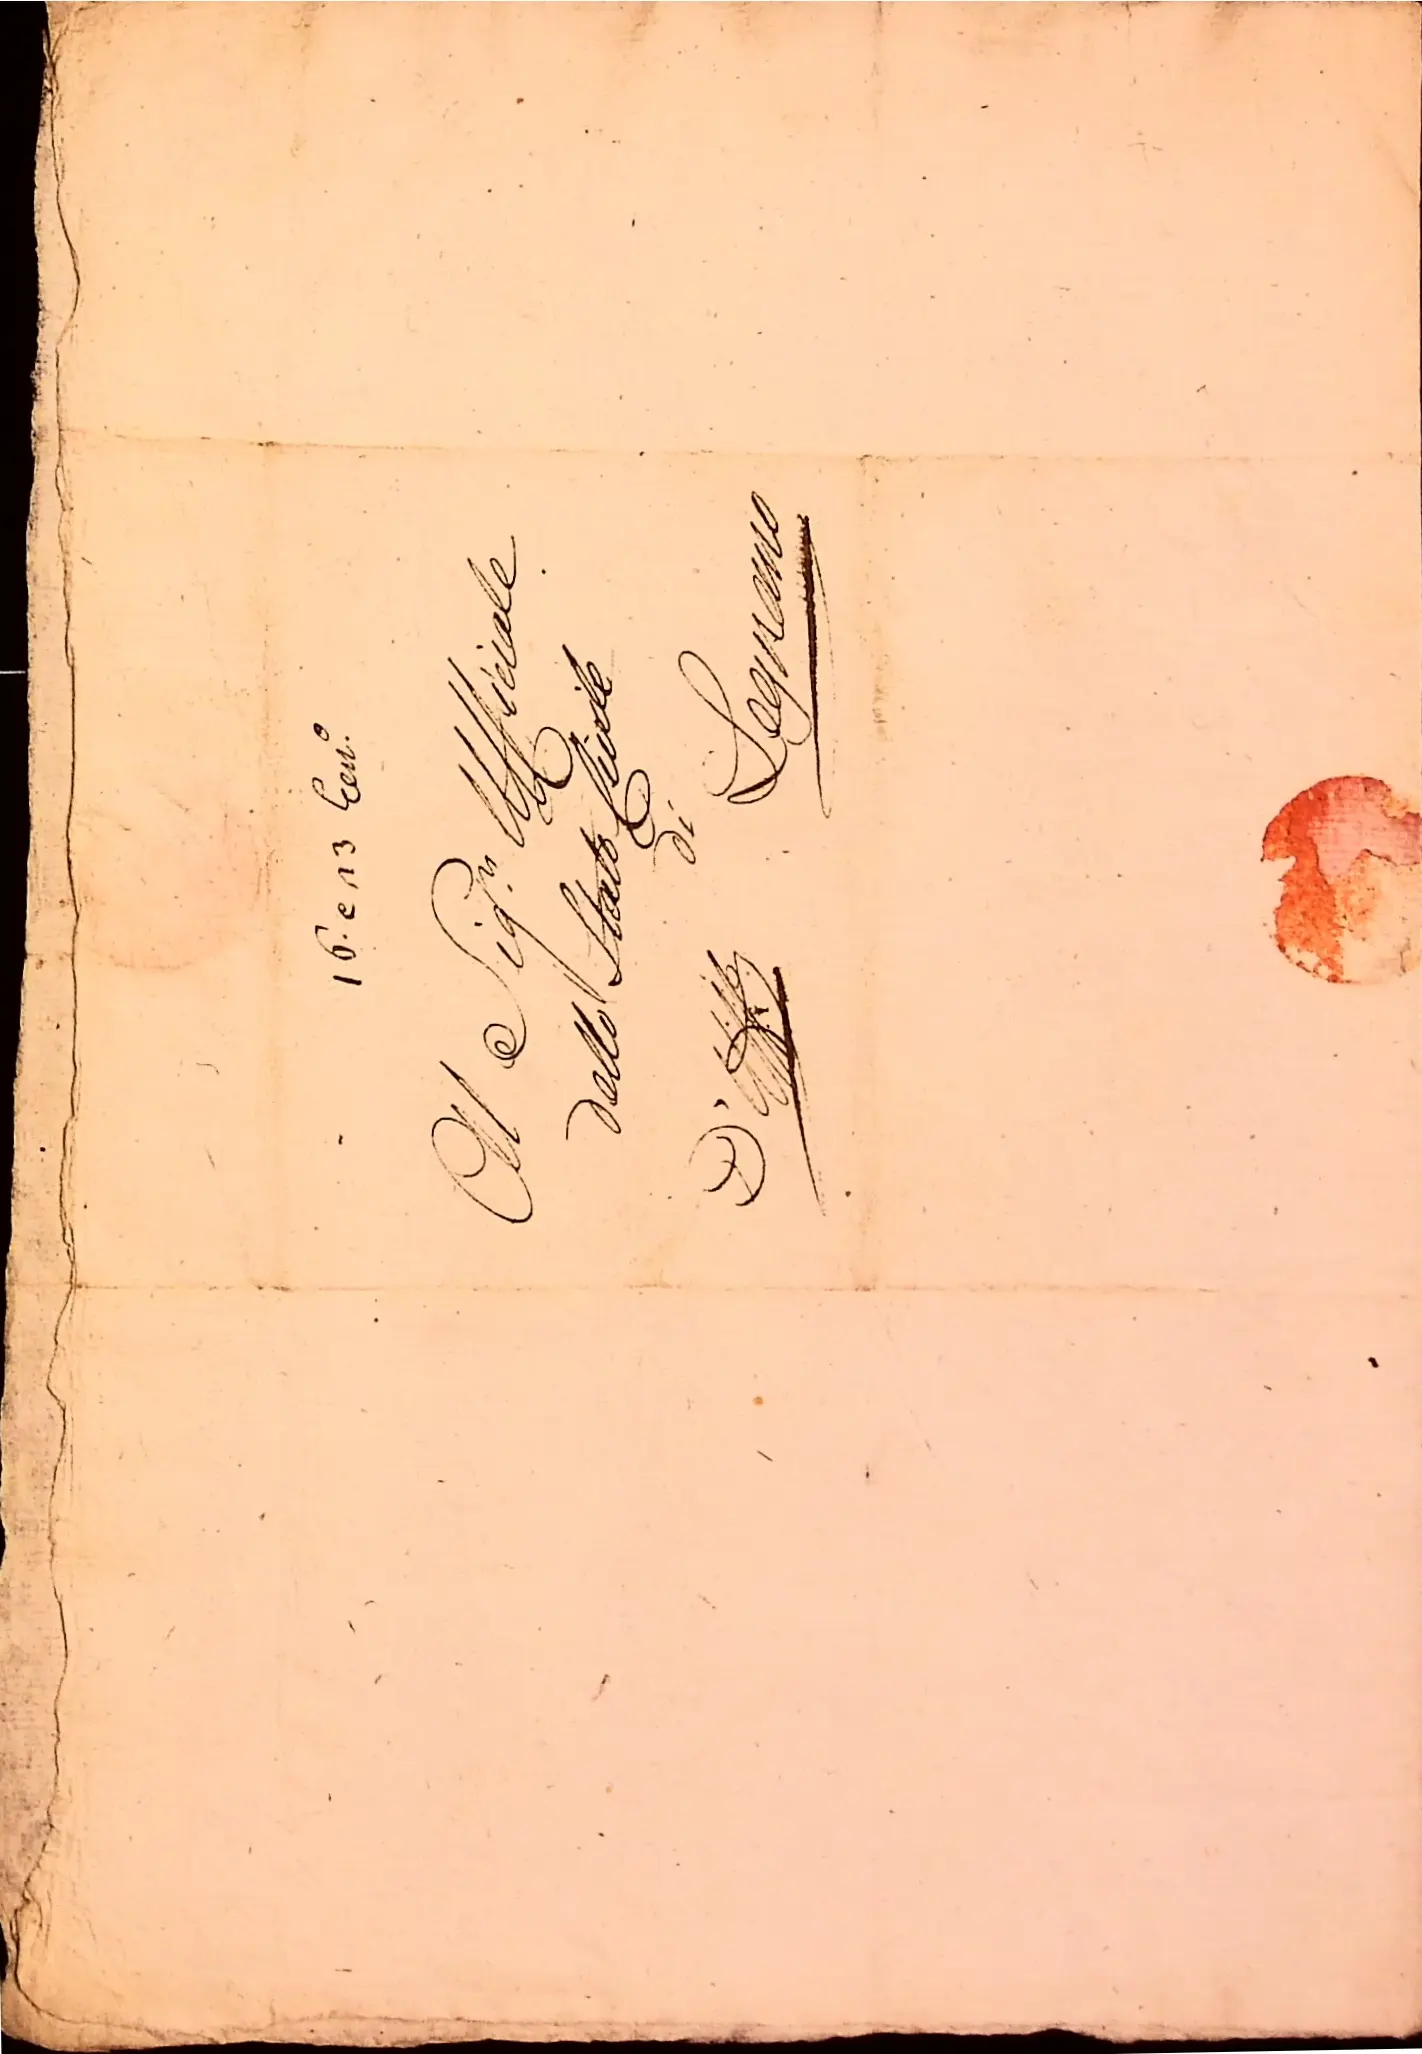 16. e 23 Gen.o
Al Sig.r Uffiziale
dello Stato Civile
di
D'Uffiz.o Legnano